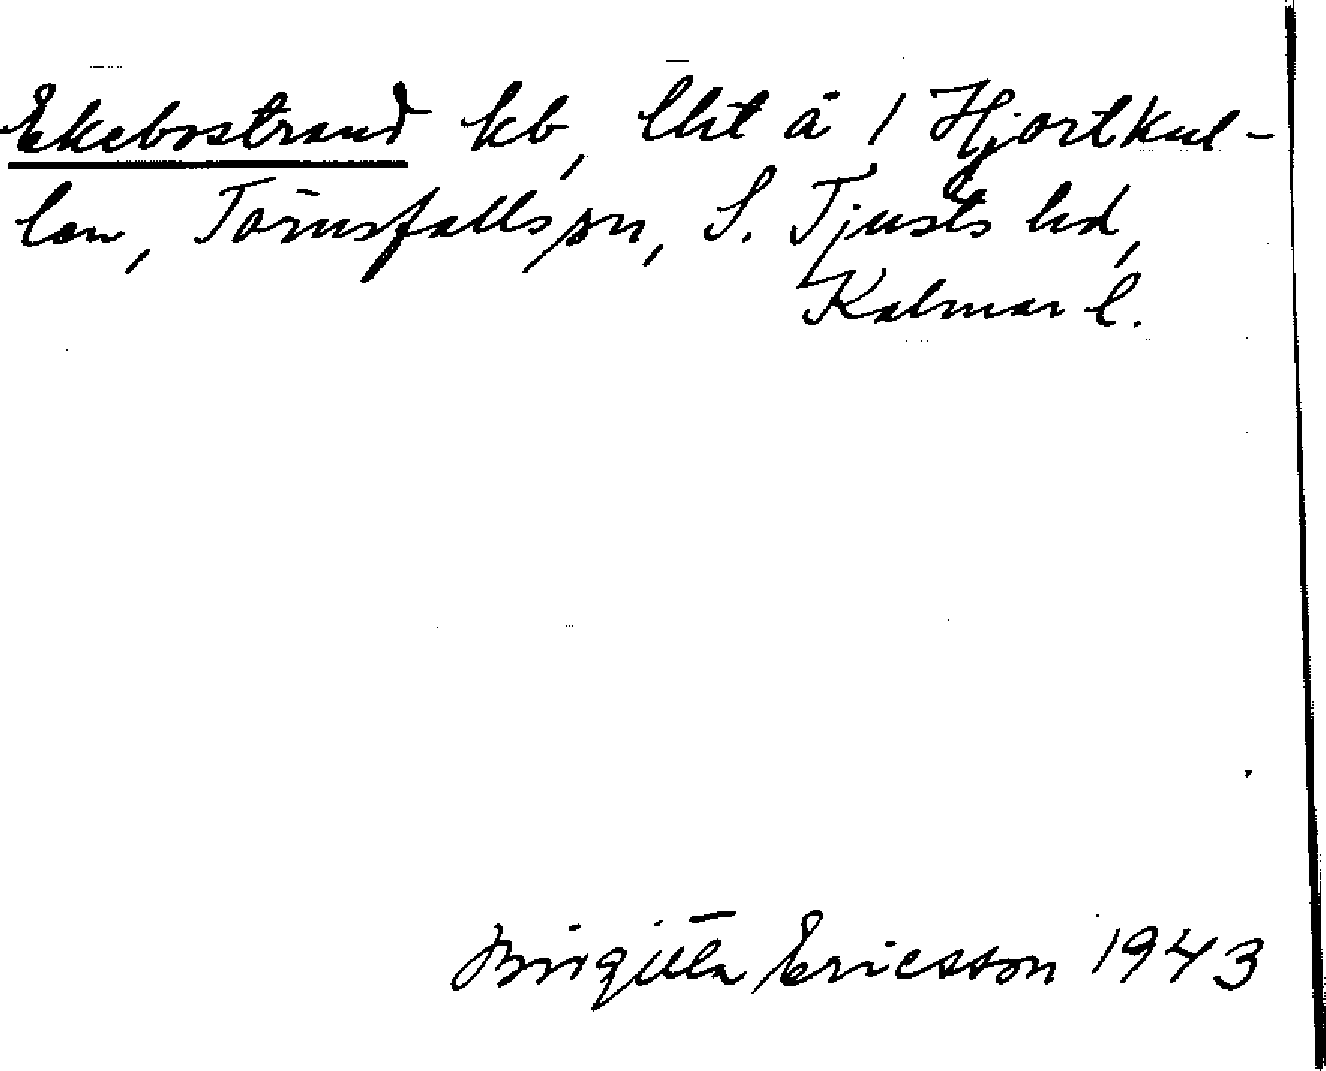 Ekebostrand kb, lht å 1 Hjortkul-
len, Törnsfalls sn, S. Tjusts hd,
Kalmar l.
Birgitta Ericsson 1943